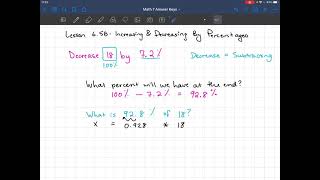 Math 7 Answer Keys
Lesson 4.5B - Increasing & Decreasing By Percentages
Decrease 18 by 7.2% Decrease = Subtracting
100%
What percent will we have at the end?
100% - 7.2% = 92.8%
What is 92.8% of 18?
x = 0.928 * 18